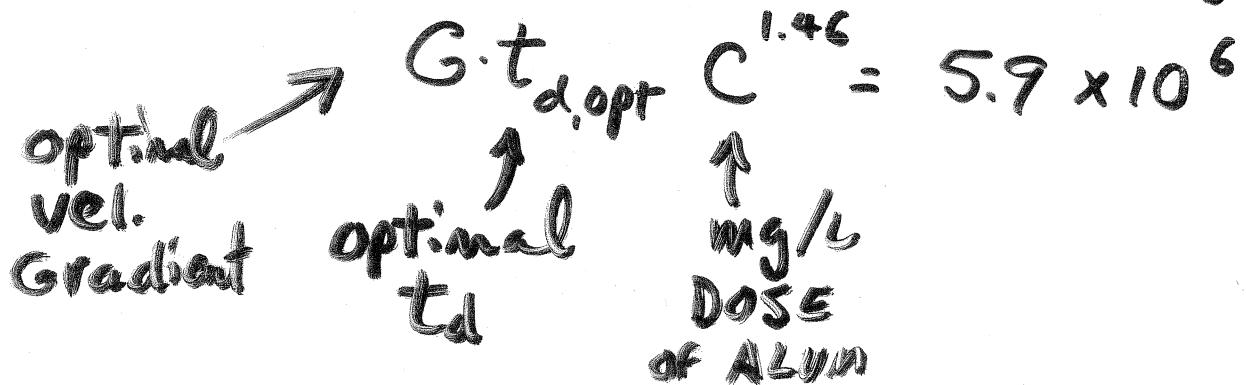 G·t_{d,opt} C^{1.46} = 5.9 x 10^6
optimal
vel.
Gradient
optimal
t_d
mg/L
DOSE
of ALUM